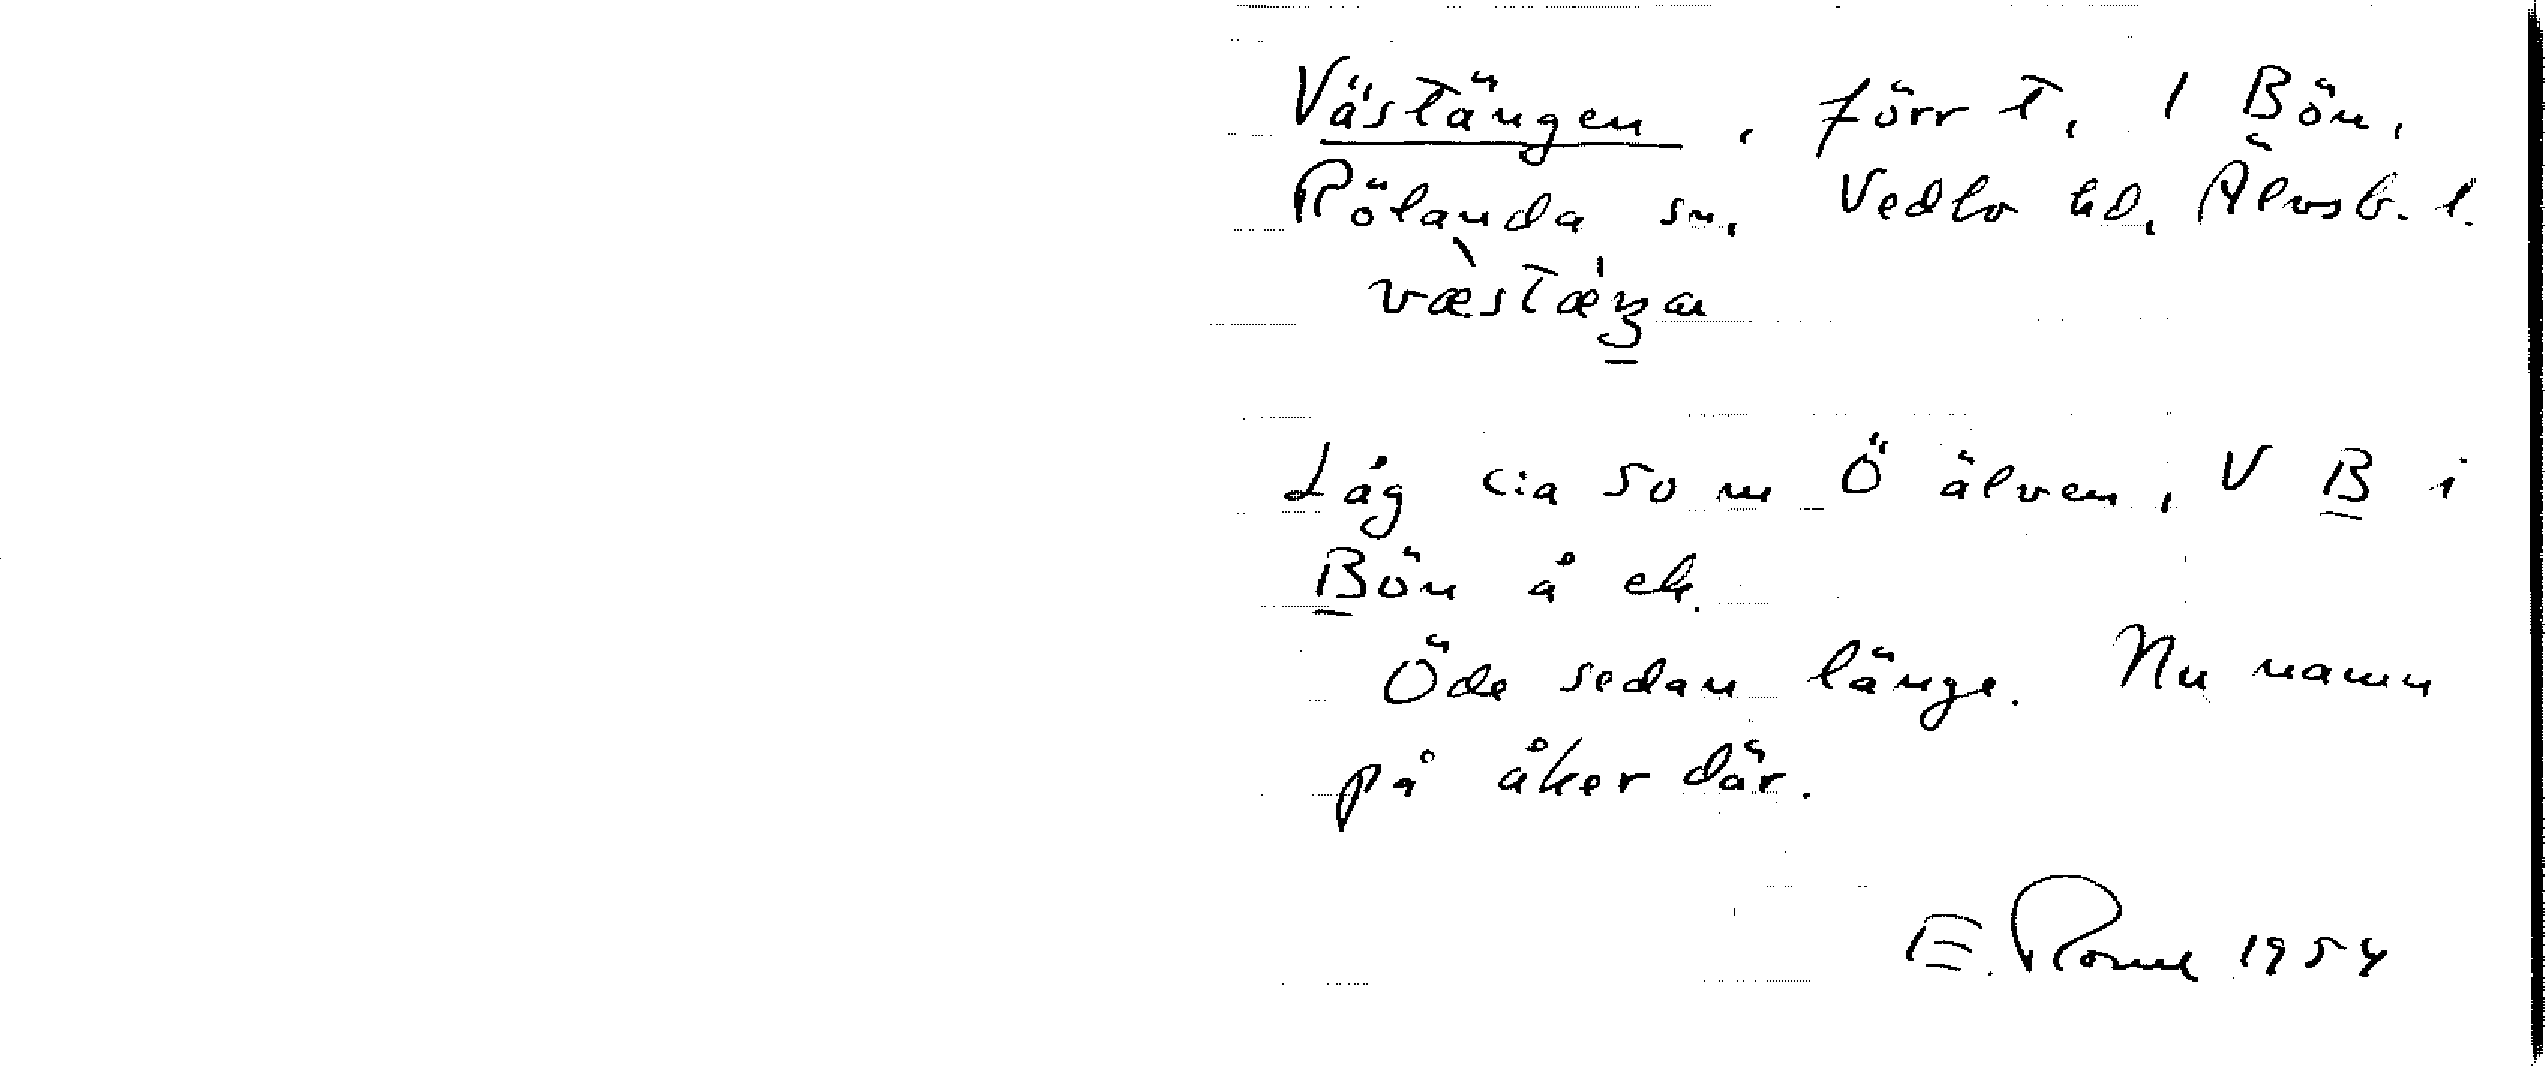 Västängen, förr t. 1 Bön,
Rölanda sn, Vedbo hd, Älvsb. l.
Låg c:a 50 m Ö älven, V B i
Bön å ek.
Öde sedan länge. Nu namn
på åker där.
E. 1954